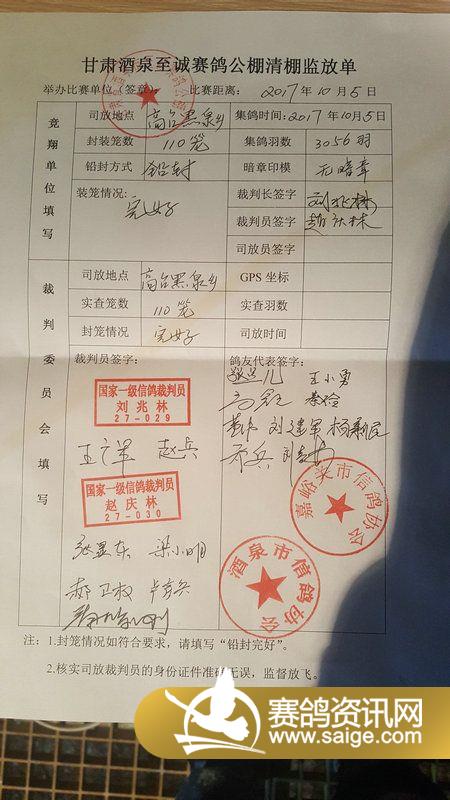 甘肃酒泉至诚赛鸽公棚清棚监放单
举办比赛单位（签章）： 比赛距离： 2017年10月5日
竞翔单位填写
司放地点 高台黑泉乡 集鸽时间：2017年10月5日
封装笼数 110笼 集鸽羽数 3056羽
铅封方式 铅封 暗章印模 无暗章
装笼情况： 完好 裁判长签字 刘兆林
裁判员签字 赵庆林
司放员签字
裁判委员会填写
司放地点 高台黑泉乡 GPS 坐标
实查笼数 110笼 实查羽数
封笼情况 完好 司放时间
裁判员签字： 鸽友代表签字：
王小勇
国家一级信鸽裁判员
刘兆林
27-029
刘建军
赵兵
国家一级信鸽裁判员
赵庆林
27-030
嘉峪关市信鸽协会
梁小明
酒泉市信鸽协会
郝卫权
注：1.封笼情况如符合要求，请填写“铅封完好”。
2.核实司放裁判员的身份证件准确无误，监督放飞。
赛鸽资讯网
www.saige.com